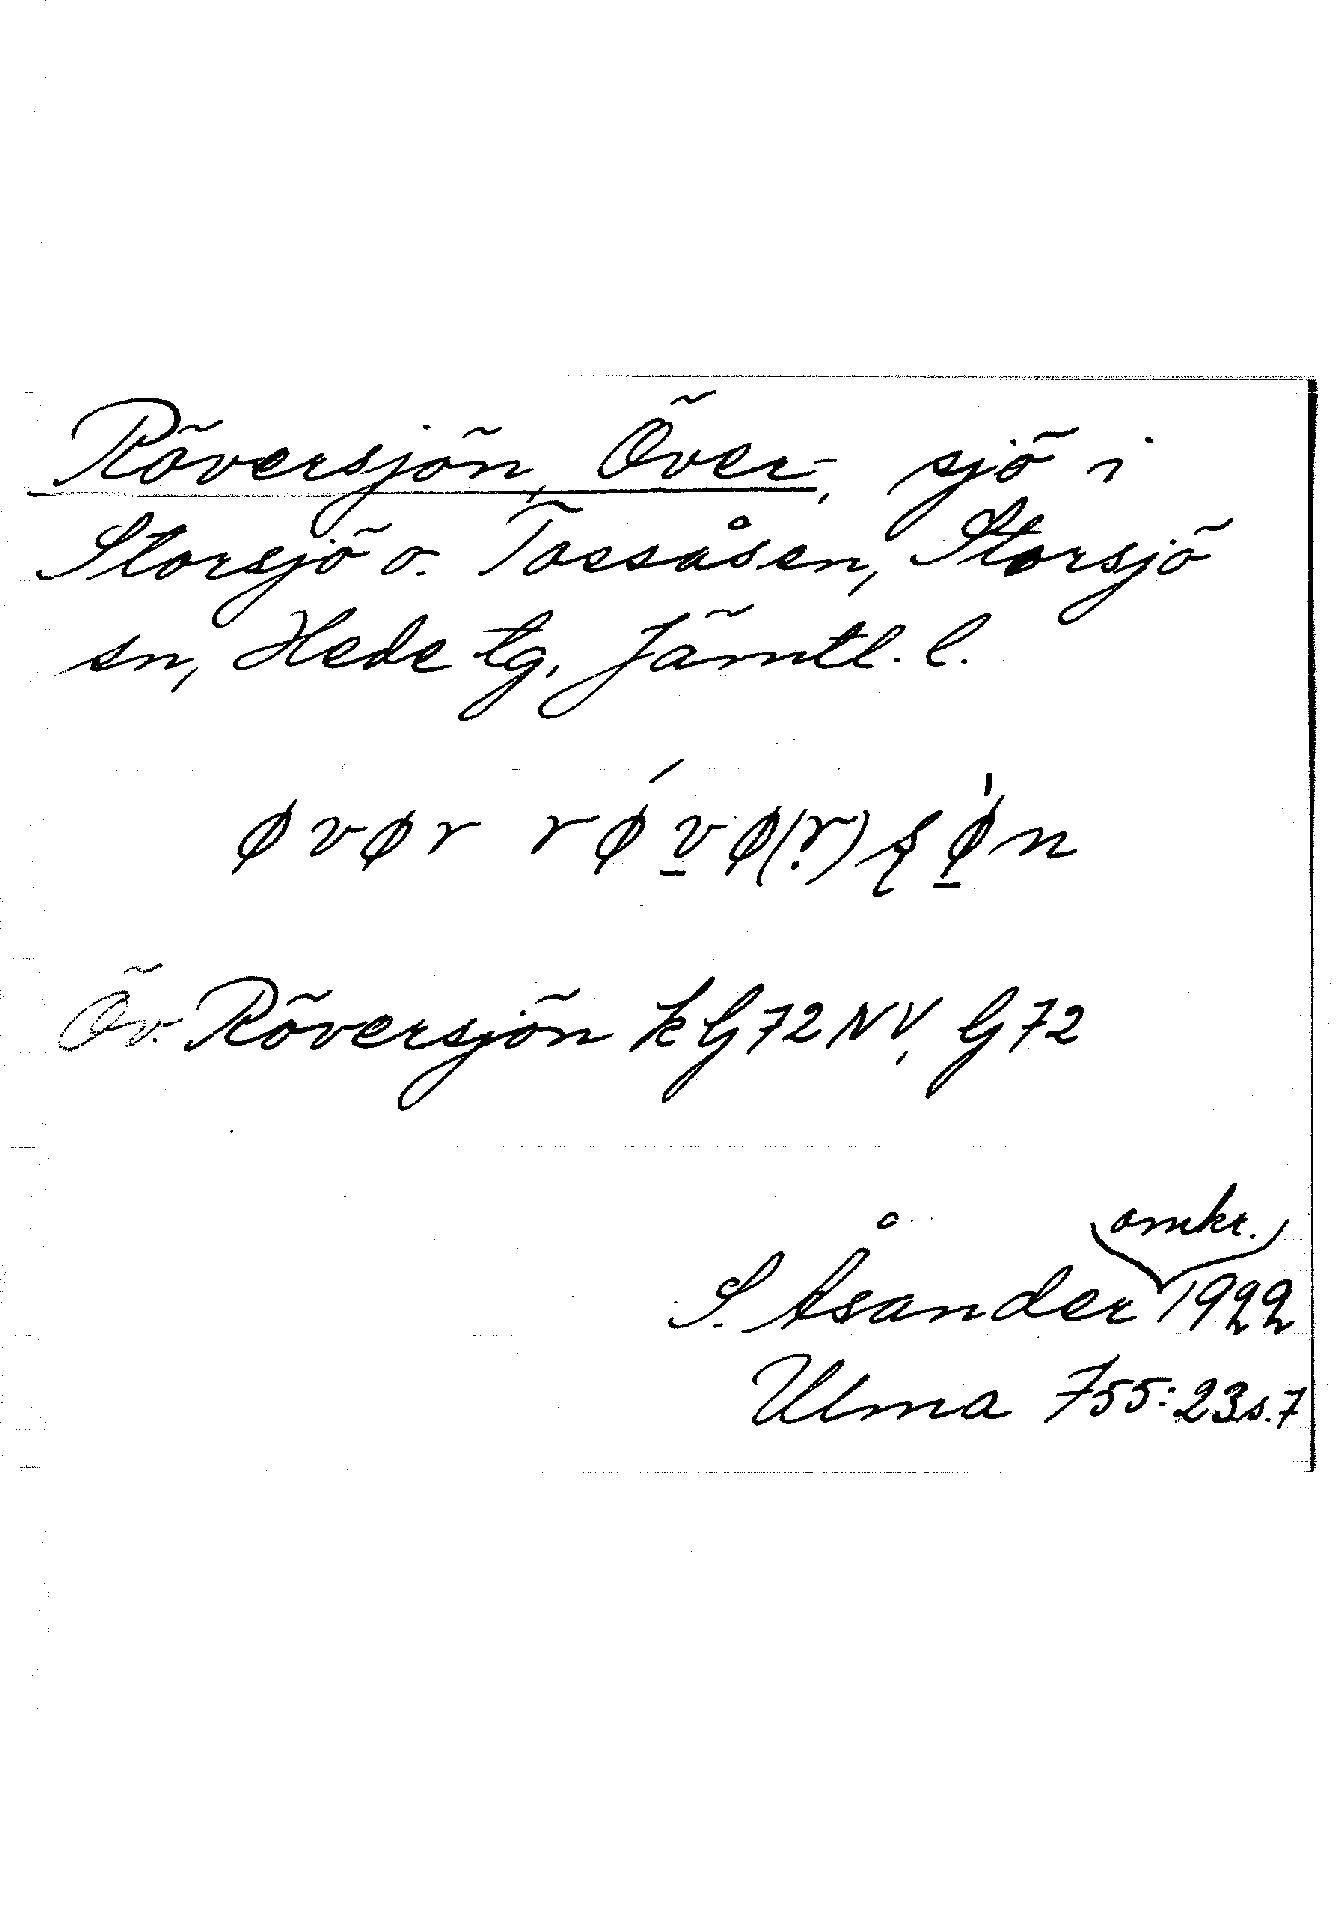 Röversjön, Över-, sjö i
Storsjö o. Tossåsen, Storsjö
sn, Hede tg, Jämtl. l.
øvør rǿv̲ø(r̤)ʂø̲̍n
Öv. Röversjön k G72NV, G72
omkr.
S. Åsander 1922
Ulma 755:23 s. 7